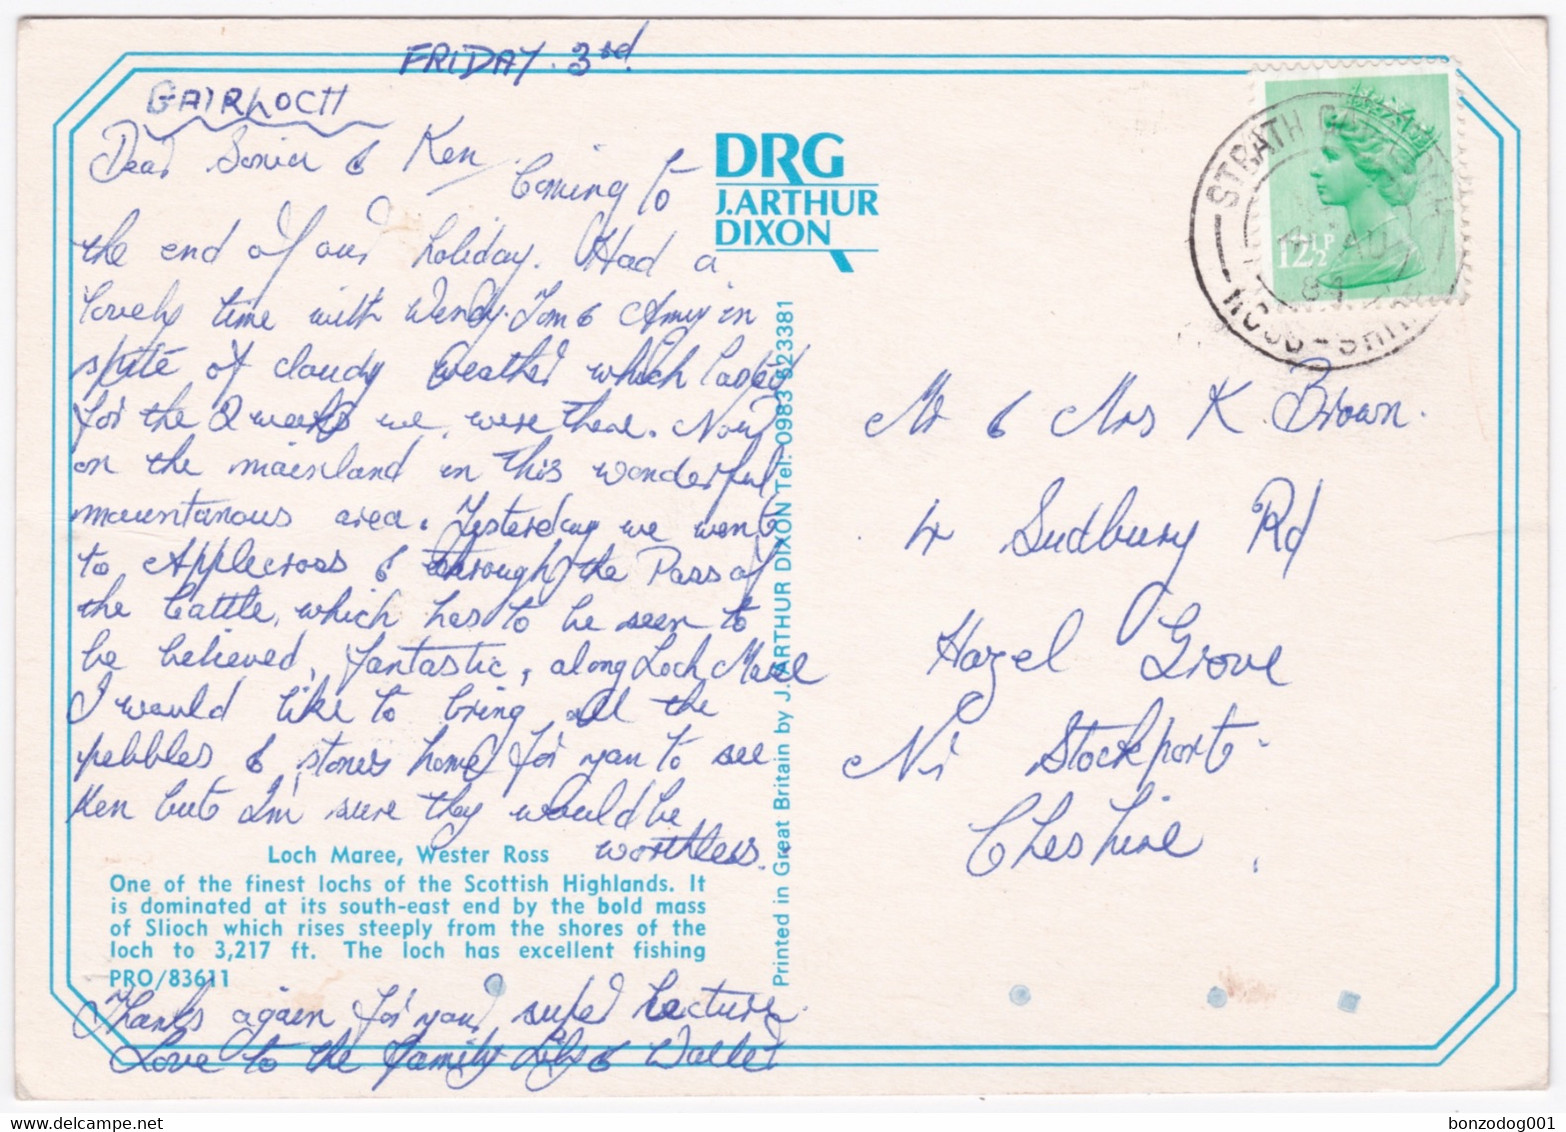 FRIDAY. 3rd
GAIRLOCH
Dear Sonia & Ken. Coming to
the end of our holiday. Had a
lovely time with Wendy. Tom & Amy in
spite of cloudy weather which lasted
for the 2 weeks we were there. Now
on the mainland in this wonderful
mountanous area. Yesterday we went
to Applecross & through the Pass of
the Cattle, which has to be seen to
be believed, fantastic, along Loch Maree
I would like to bring all the
pebbles & stones home for you to see
Ken but I'm sure they would be
worthless.
Loch Maree, Wester Ross
One of the finest lochs of the Scottish Highlands. It
is dominated at its south-east end by the bold mass
of Slioch which rises steeply from the shores of the
loch to 3,217 ft. The loch has excellent fishing
PRO/83611
Thanks again for your super lecture.
Love to the family Lily & Walter
DRG
J.ARTHUR
DIXON
Printed in Great Britain by J. ARTHUR DIXON Tel: 0983 523381
12½P
STRATH GAIRLOCH
ROSS-SHIRE
AU
Mr & Mrs K Brown.
4 Sudbury Rd
Hazel Grove
Nr Stockport.
Cheshire.
bonzodog001